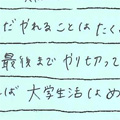 だやれることはたく
最後までやり切って
ば大学生活はめ